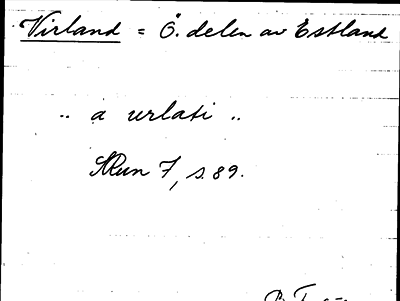 Virland = Ö. delen av Estland
.. a urlati ..
SRun 7, s. 89.